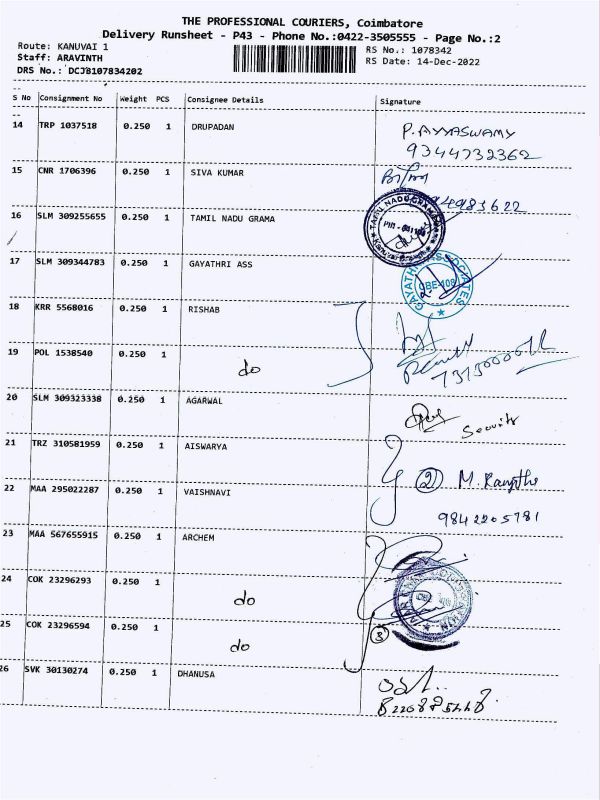 THE PROFESSIONAL COURIERS, Coimbatore
Delivery Runsheet - P43 - Phone No.:0422-3505555 - Page No.:2
Route: KANUVAI 1
Staff: ARAVINTH
DRS No.: DCJB107834202
RS No.: 1078342
RS Date: 14-Dec-2022
S No Consignment No Weight PCS Consignee Details Signature
14 TRP 1037518 0.250 1 DRUPADAN P. AYYASWAMY
9344732362
15 CNR 1706396 0.250 1 SIVA KUMAR
16 SLM 309255655 0.250 1 TAMIL NADU GRAMA
17 SLM 309344783 0.250 1 GAYATHRI ASS GAYATHRI ASSOCIATES
18 KRR 5568016 0.250 1 RISHAB
19 POL 1538540 0.250 1 do
20 SLM 309323338 0.250 1 AGARWAL Security
21 TRZ 310581959 0.250 1 AISWARYA
22 MAA 295022287 0.250 1 VAISHNAVI 2 M.
9842205781
23 MAA 567655915 0.250 1 ARCHEM
24 COK 23296293 0.250 1 do
25 COK 23296594 0.250 1 do 3
26 SVK 30130274 0.250 1 DHANUSA